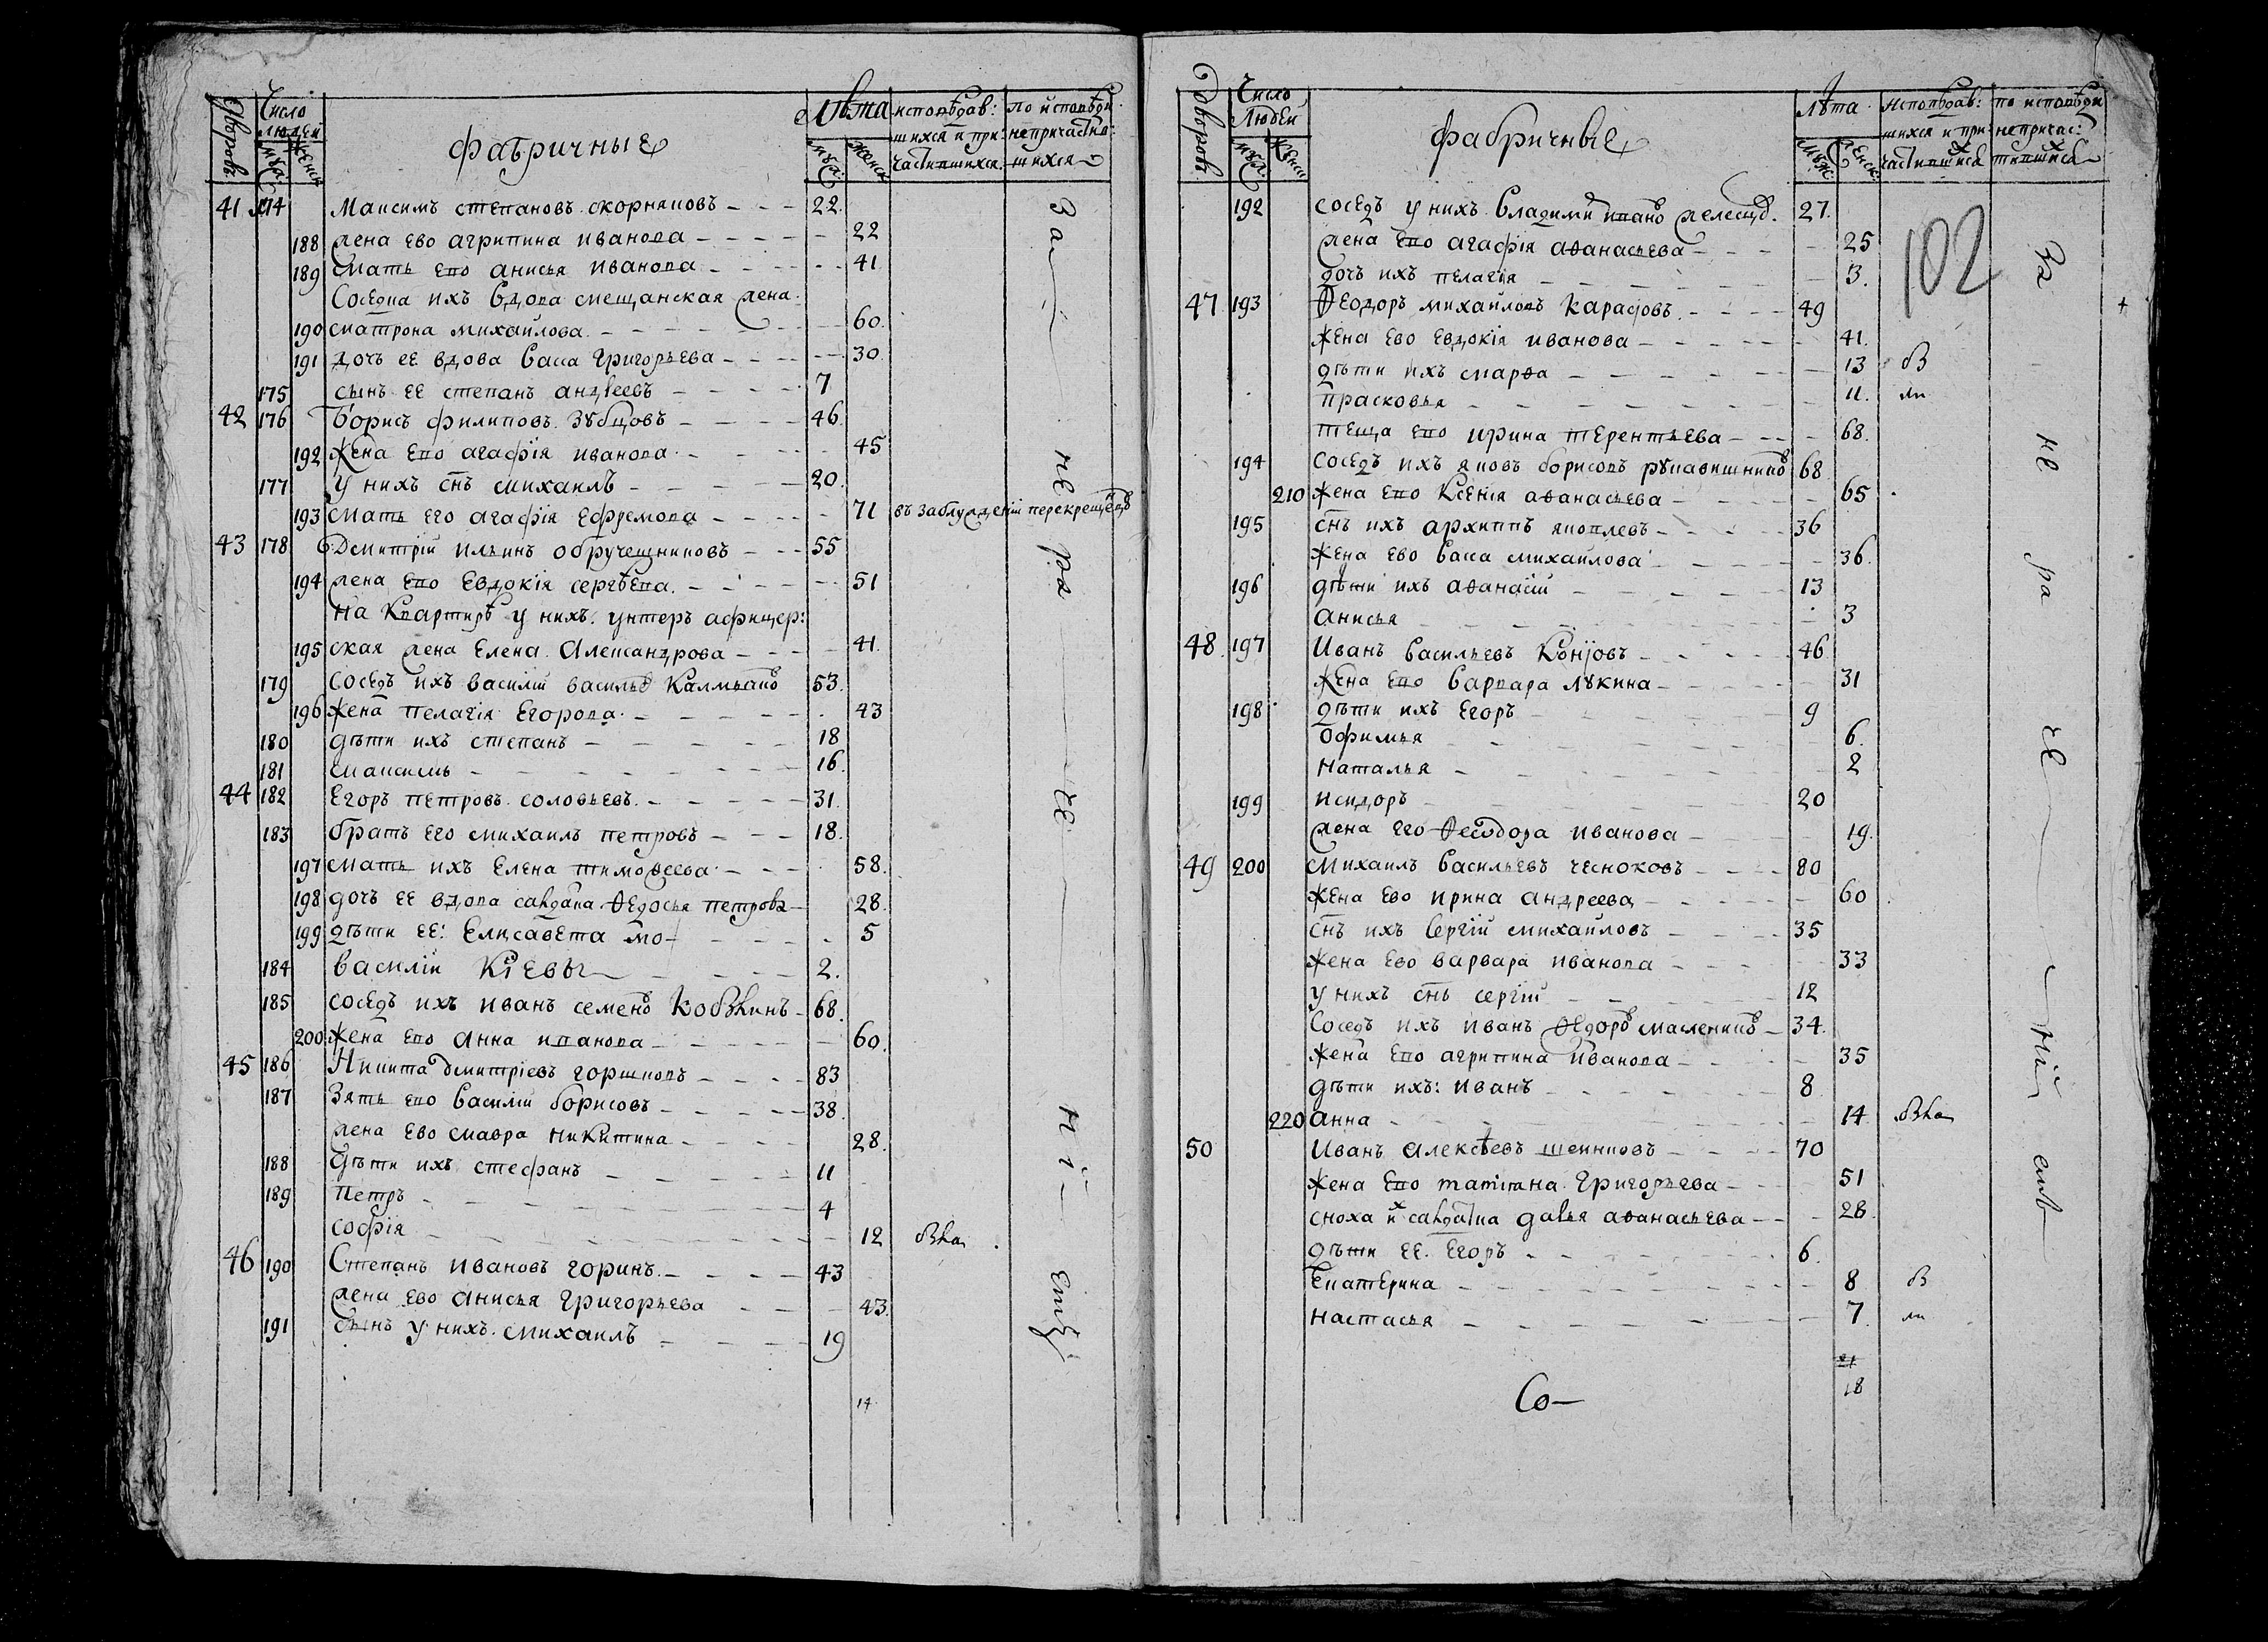 Дворовъ
Число людей
мужа:
женск
фабричные
Лѣта
мужа:
женск
исповѣдав:
шихся и при:
частившихся
по исповѣди
непричастив:
шихся
41 174 Максимъ степановъ скорняковъ 22
188 жена ево агрипина иванова 22
189 мать ево анисья иванова 41
Соседка ихъ вдова мещанская жена
190 матрона михаилова 60
191 дочь ее вдова васса григорьева 30
175 сынъ ее степанъ андреевъ 7
42 176 Борисъ филиповъ зубцовъ 46
192 жена ево агафія иванова 45
177 у нихъ снъ михаилъ 20
193 мать его агафія ефремова 71 въ заблужденіи
43 178 Дмитріи ильинъ обручешниковъ 55
194 жена ево евдокія сергѣева 51
на квартирѣ у нихъ унтеръ афицер:
195 ская жена елена александрова 41
179 соседъ ихъ василіи васильевъ 53
196 жена пелагія егорова 43
180 дѣти ихъ степанъ 18
181 максимъ 16
44 182 Егоръ петровъ соловьевъ 31
183 братъ его михаилъ петровъ 18
197 мать ихъ елена тимоѳеева 58
198 дочь ее вдова салдатка ѳедосья петрова 28
199 дѣти ее: елисавета 5
184 василіи 2
185 соседъ ихъ иванъ семеновъ 68
200 жена ево анна иванова 60
45 186 Никита дмитріевъ горшковъ 83
187 Зять ево василіи борисовъ 38
жена ево мавра никитина 28
188 дѣти ихъ стефанъ 11
189 петръ 4
софія 12
46 190 Степанъ ивановъ горинъ 43
жена ево анисья григорьева 43
191 сынъ у нихъ михаилъ 19
14
За не ра че ні емъ
Дворовъ
Число
людей
мужа:
женск
фабричные
лѣта
муж:
женск:
исповѣдав:
шихся и при
частившихся
по исповѣди
непричас:
тившихся
102
192 соседъ у нихъ владимиръ ивановъ 27
жена ево агафія аѳанасьева 25
дочь ихъ пелагія 3
47 193 Ѳеодоръ михаиловъ карасовъ 49
жена ево евдокія иванова 41
дѣти ихъ марѳа 13
прасковья 11
теща ево ирина терентьева 68
194 соседъ ихъ яковъ борисовъ рукавишниковъ 68
210 жена ево ксенія аѳанасьева 65
195 снъ ихъ архиппъ яковлевъ 36
жена ево васса михаилова 36
196 дѣти ихъ аѳанасіи 13
анисья 3
48 197 Иванъ васильевъ 46
жена ево варвара лукина 31
198 дѣти ихъ егоръ 9
офимья 6
наталья 2
199 исидоръ 20
жена его ѳеодора иванова 19
49 200 михаилъ васильевъ чесноковъ 80
жена ево ирина андреева 60
снъ ихъ сергіи михаиловъ 35
жена ево варвара иванова 33
у нихъ снъ сергіи 12
соседъ ихъ иванъ ѳедоровъ маслениковъ 34
жена ево агрипина иванова 35
дѣти ихъ: иванъ 8
220 анна 14
50 Иванъ алексѣевъ шеинковъ 70
жена ево татіана григорьева 51
сноха их салдатка дарья аѳанасьева 28
дѣти ее егоръ 6
екатерина 8
настасья 7
21
18
Со—
За не ра че ніи емъ